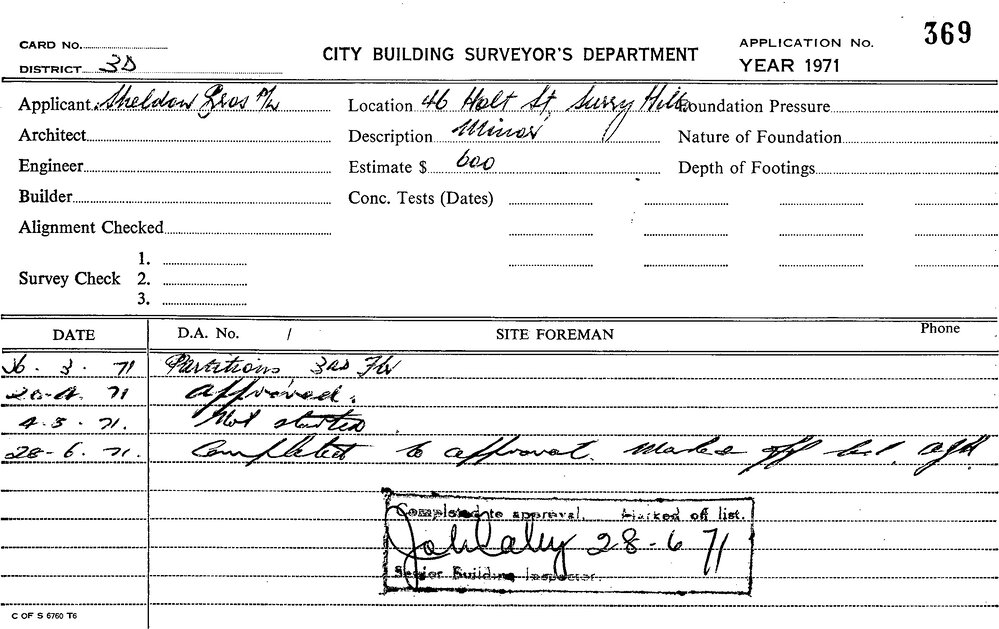 369
CARD No.
DISTRICT 3D
CITY BUILDING SURVEYOR'S DEPARTMENT
APPLICATION No.
YEAR 1971
Applicant Sheldon Bros P/L
Location 46 Holt St, Surry Hills
Foundation Pressure
Architect
Description Minor
Nature of Foundation
Engineer
Estimate $ 600
Depth of Footings
Builder
Conc. Tests (Dates)
Alignment Checked
Survey Check
1.
2.
3.
DATE D.A. No. / SITE FOREMAN Phone
3. 71 Partitions 3rd Flr
71 approved.
4.5.71. Not started
28-6.71. Completed to approval. Marked off list.
Completed to approval. Marked off list.
28-6 71
Senior Building Inspector.
C OF S 6760 T6